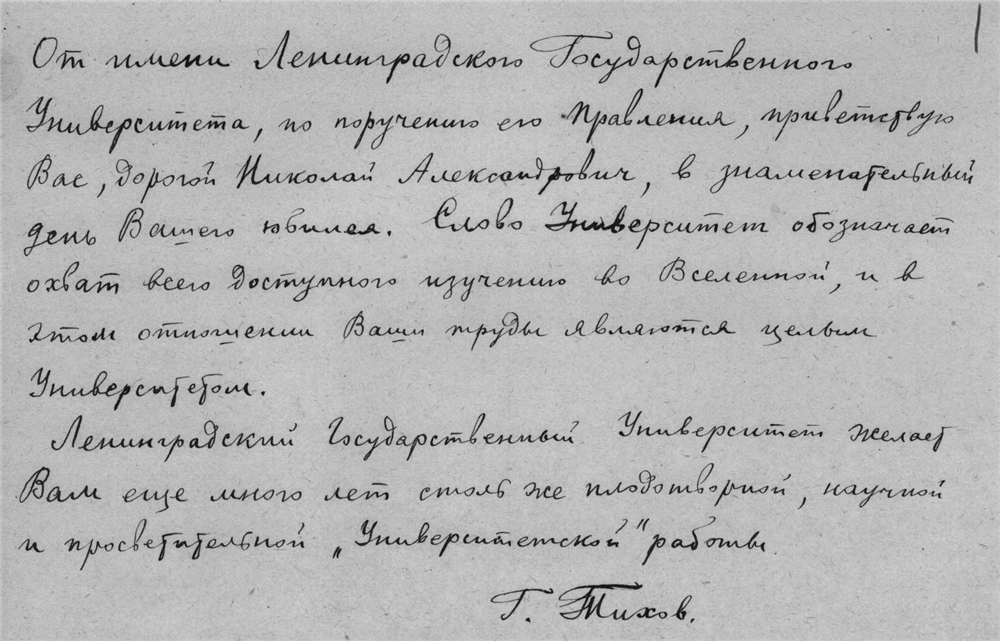 От имени Ленинградского Государственного
Университета, по поручению его Правления, приветствую
Вас, дорогой Николай Александрович, в знаменательный
день Вашего юбилея. Слово Университет обозначает
охват всего доступного изучению во Вселенной, и в
этом отношении Ваши труды являются целым
Университетом.
Ленинградский Государственный Университет желает
Вам еще много лет столь же плодотворной, научной
и просветительной „Университетской" работы.
Г. Тихов.